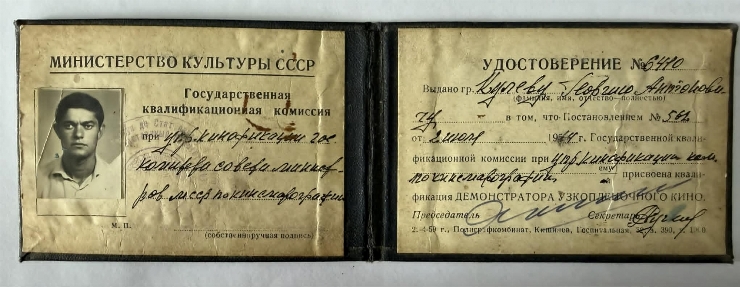 МИНИСТЕРСТВО КУЛЬТУРЫ СССР
Государственная
квалификационная комиссия
при упр. кинофикации гос
комитета совета минист-
ров мсср по кинематографии
М. П.
(собственноручная подпись)
УДОСТОВЕРЕНИЕ № 6410
Выдано гр. Георгию Антонови
(фамилия, имя, отчество—полностью)
чу в том, что Постановлением № 562
от 2 июля г. Государственной квали-
фикационной комиссии при упр кинофикации ком.
по кинематографии ему присвоена квали-
фикация ДЕМОНСТРАТОРА УЗКОПЛЕНОЧНОГО КИНО.
Председатель Секретарь
2-4-59 г., Полиграфкомбинат, Кишинев, Госпитальная, з. 390, т.